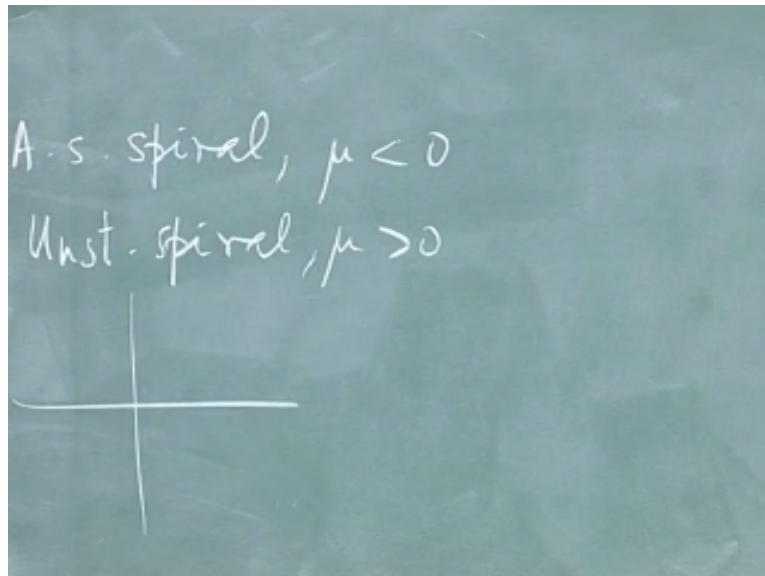 A.s. spiral, μ < 0
Unst. spiral, μ > 0